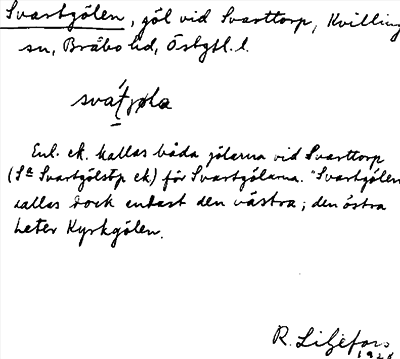 Svartgölen, göl vid Svarttorp, Kvilling
sn, Bråbo hd, Östgtl. l.
Enl. ek. kallas båda gölarna vid Svarttorp
(Sa Svartgölstp ek) för Svartgölarna. "Svartgölen
kallas dock endast den västra; den östra
heter Kyrkgölen.
R. Liljefors